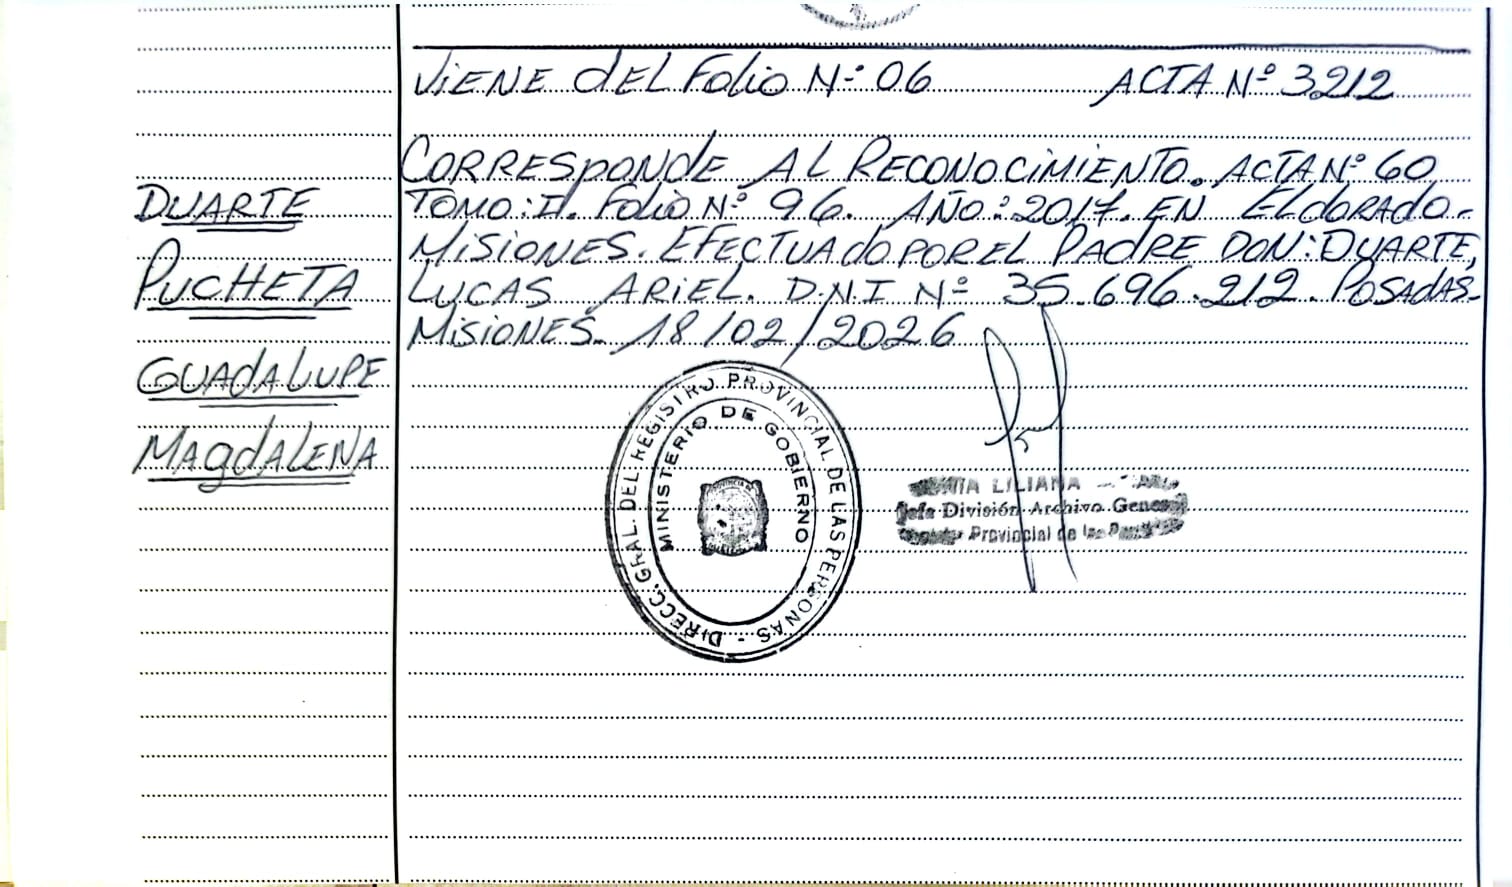 ViENE dEL Folio Nº 06 ACTA Nº 3212
DUARTE
PUCHETA
GUADALUPE
MAgdALENA
CORRESponde AL RECONOCiMiENTO. ACTA Nº 60
TOMO: II. Folio Nº 96. AÑO: 2017. EN ELdORADO-
MiSiONES. EFECTUAdO POR EL PADRE DON: DUARTE,
LUCAS ARiEL. D.N.I Nº 35.696.212. POSAdAS-
MiSiONES. 18/02/2026
DIRECC. GRAL. DEL REGISTRO PROVINCIAL DE LAS PERSONAS -
MINISTERIO DE GOBIERNO
LILIANA
Jefe División Archivo General
Provincial de las